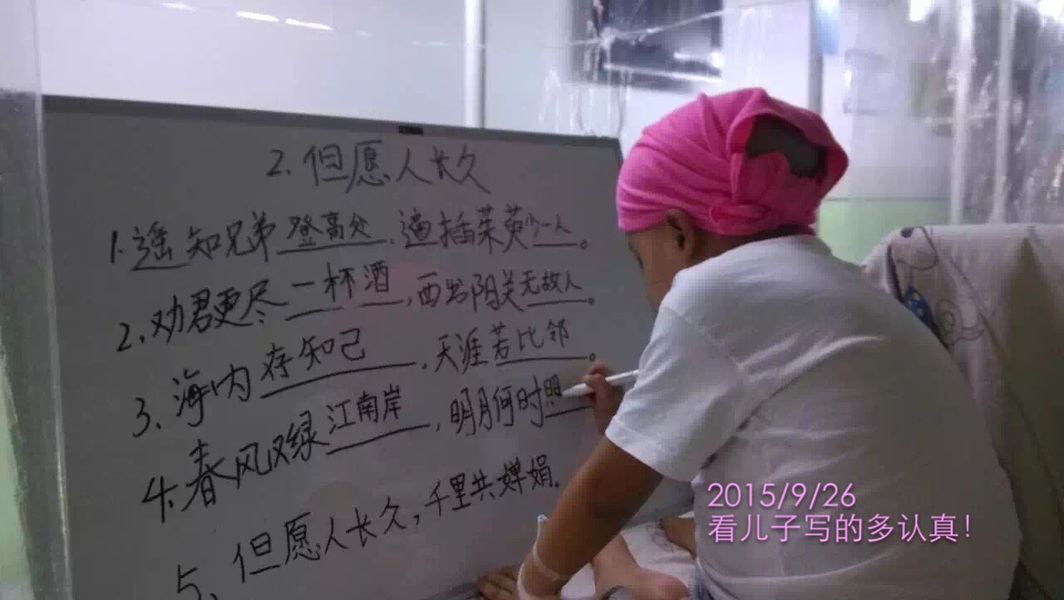 2、但愿人长久
1、遥知兄弟登高处,遍插茱萸少一人。
2、劝君更尽一杯酒,西出阳关无故人。
3、海内存知己,天涯若比邻。
4、春风又绿江南岸,明月何时照
5、但愿人长久,千里共婵娟。
2015/9/26
看儿子写的多认真!